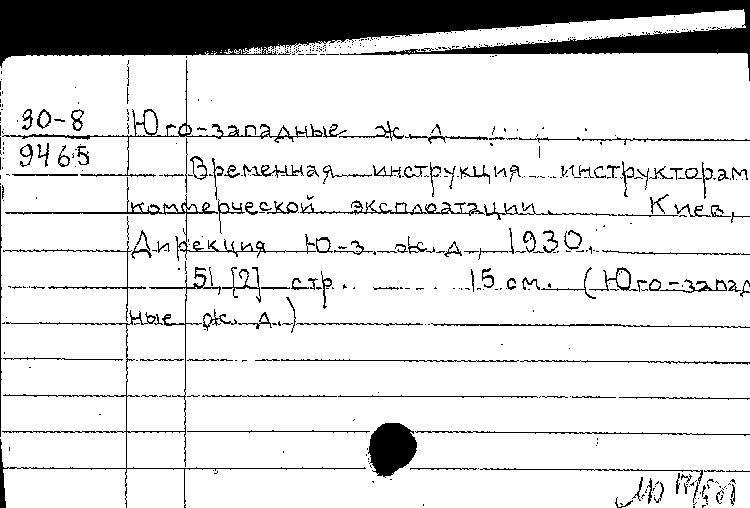 30-8
9465
Юго-западные ж. д
Временная инструкция инструкторам
коммерческой эксплоатации. Киев,
Дирекция Ю-з. ж. д, 1930.
51, [2] стр. 15 см. (Юго-запад
ные ж. д.)